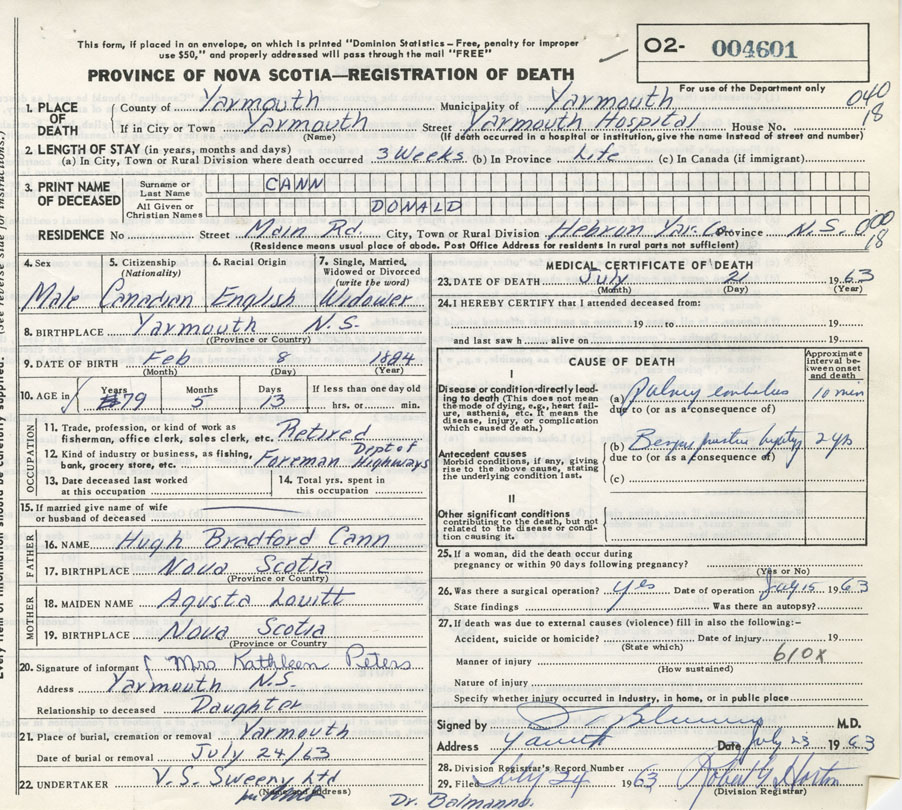 This form, if placed in an envelope, on which is printed "Dominion Statistics - Free, penalty for improper
use $50," and properly addressed will pass through the mail "FREE"
O2- 004601
PROVINCE OF NOVA SCOTIA—REGISTRATION OF DEATH
For use of the Department only
1. PLACE OF DEATH County of Yarmouth Municipality of Yarmouth 040
If in City or Town Yarmouth Street Yarmouth Hospital House No. 18
(Name) (If death occurred in a hospital or institution, give the name instead of street and number)
2. LENGTH OF STAY (in years, months and days)
(a) In City, Town or Rural Division where death occurred 3 Weeks (b) In Province Life (c) In Canada (if immigrant)
3. PRINT NAME OF DECEASED
Surname or Last Name CANN
All Given or Christian Names DONALD
RESIDENCE No Street Main Rd. City, Town or Rural Division Hebron Yar. Co Province N.S. 000
18
(Residence means usual place of abode. Post Office Address for residents in rural parts not sufficient)
4. Sex Male
5. Citizenship (Nationality) Canadian
6. Racial Origin English
7. Single, Married, Widowed or Divorced (write the word) Widower
8. BIRTHPLACE Yarmouth N.S.
(Province or Country)
9. DATE OF BIRTH Feb 8 1884
(Month) (Day) (Year)
10. AGE in Years 79 Months 5 Days 13 If less than one day old hrs. or min.
OCCUPATION
11. Trade, profession, or kind of work as fisherman, office clerk, sales clerk, etc. Retired
12. Kind of industry or business, as fishing, bank, grocery store, etc. Foreman Dept of Highways
13. Date deceased last worked at this occupation
14. Total yrs. spent in this occupation
15. If married give name of wife or husband of deceased
FATHER
16. NAME Hugh Bradford Cann
17. BIRTHPLACE Nova Scotia
(Province or Country)
MOTHER
18. MAIDEN NAME Agusta Lovitt
19. BIRTHPLACE Nova Scotia
(Province or Country)
20. Signature of informant Mrs Kathleen Peters
Address Yarmouth N.S.
Relationship to deceased Daughter
21. Place of burial, cremation or removal Yarmouth
Date of burial or removal July 24/63
22. UNDERTAKER V.S. Sweeny Ltd
(Name and address)
MEDICAL CERTIFICATE OF DEATH
23. DATE OF DEATH July 21 1963
(Month) (Day) (Year)
24. I HEREBY CERTIFY that I attended deceased from:
19 to 19
and last saw h alive on 19
CAUSE OF DEATH
Approximate interval between onset and death
I
Disease or condition directly leading to death (This does not mean the mode of dying, e.g., heart failure, asthenia, etc. It means the disease, injury, or complication which caused death.)
(a) Pulmy embolus 10 min
due to (or as a consequence of)
Antecedent causes
Morbid conditions, if any, giving rise to the above cause, stating the underlying condition last.
(b) 2 yrs
due to (or as a consequence of)
(c)
II
Other significant conditions contributing to the death, but not related to the disease or condition causing it.
25. If a woman, did the death occur during pregnancy or within 90 days following pregnancy?
(Yes or No)
26. Was there a surgical operation? Yes Date of operation July 15 1963
State findings Was there an autopsy?
27. If death was due to external causes (violence) fill in also the following:-
Accident, suicide or homicide? Date of injury 19
(State which)
Manner of injury 610X
(How sustained)
Nature of injury
Specify whether injury occurred in Industry, in home, or in public place
Signed by M.D.
Address Date July 23 1963
28. Division Registrar's Record Number
29. Filed July 24 1963 Robert G Horton
(Division Registrar)
Dr. Belmanno.